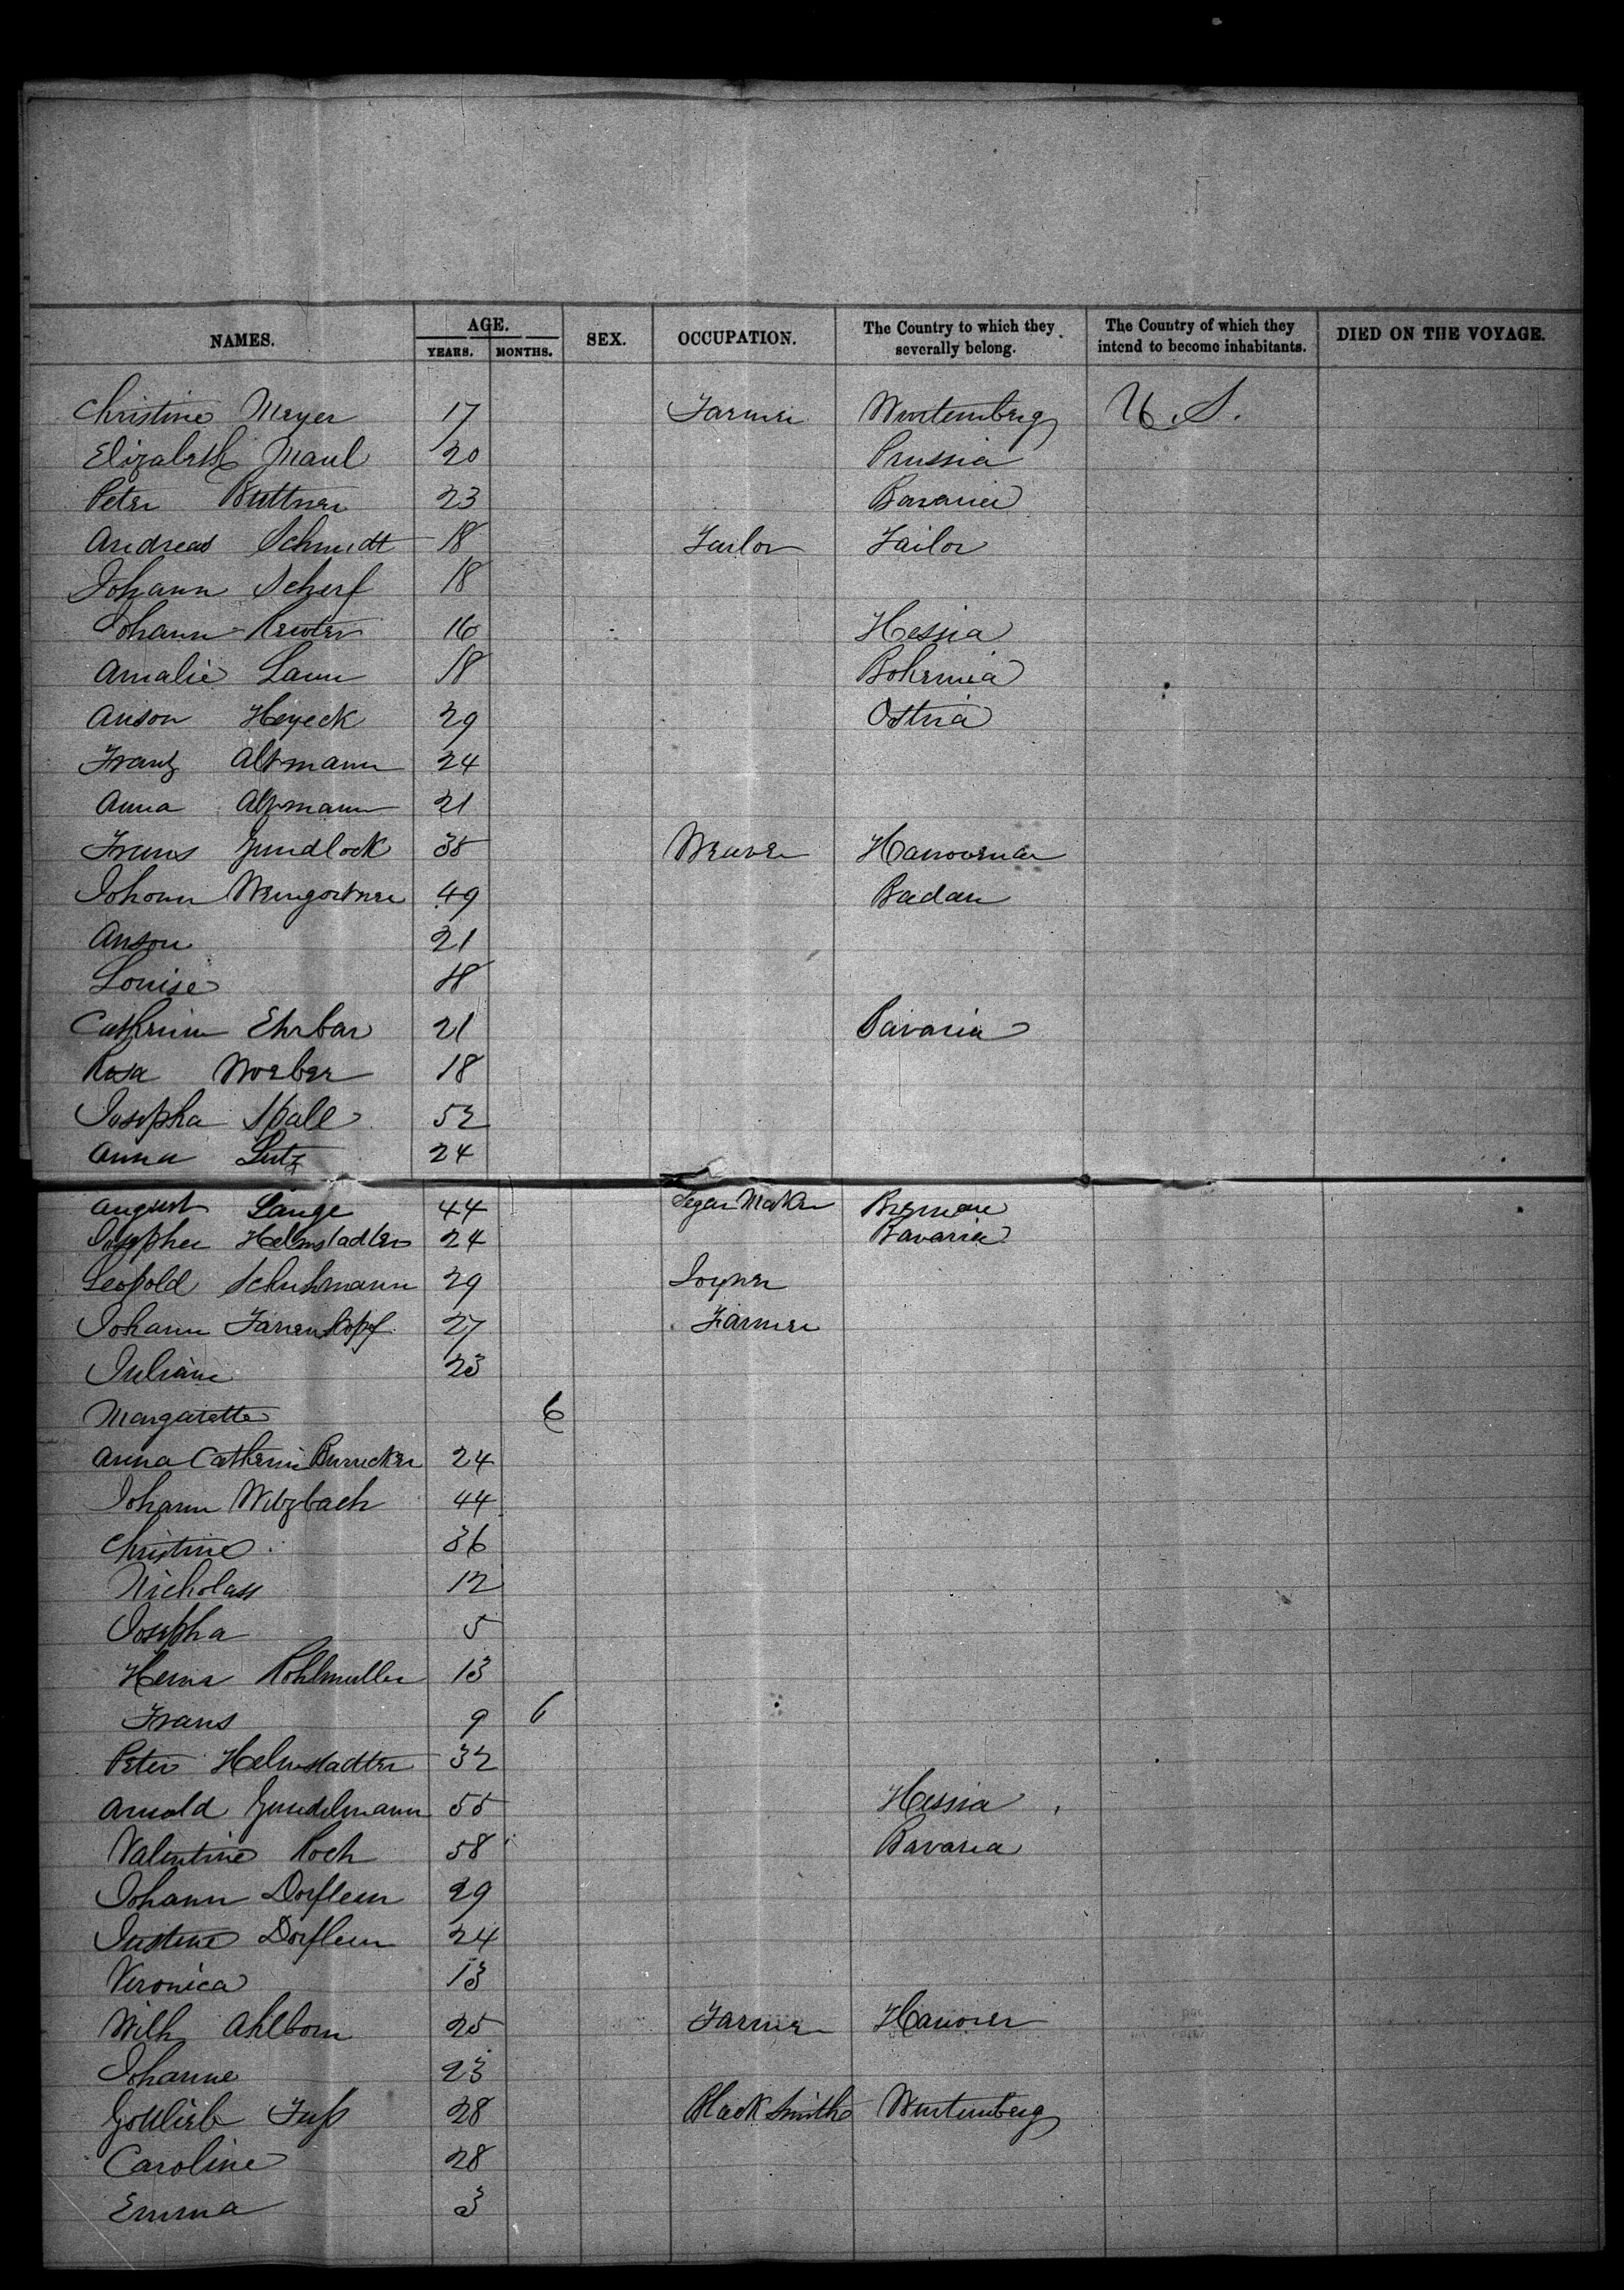 NAMES. AGE. YEARS. MONTHS. SEX. OCCUPATION. The Country to which they severally belong. The Country of which they intend to become inhabitants. DIED ON THE VOYAGE.
Christine Meyer 17 Farmer Wurtemberg U.S.
Elizabeth Maul 20 Prussia
Peter Buttner 23 Bavaria
Andreas Schmidt 18 Tailor Tailor
Johann Scherf 18
Johann Reuter 16 Hessia
Amalie 18 Bohemia
Anson Heyeck 29 Ostria
Franz Altmann 24
Anna Altmann 21
Frans Gundlock 35 Weaver
Johann Weingortner 49 Badan
Anson 21
Louise 18
Ehrbar 21 Bavaria
Rosa Woeber 18
Josepha Spall 52
Anna Lutz 24
August Lange 44 Segar Maker
Helmstadter 24 Bavaria
Leopold Schuhmann 29 Joyner
Johann Farrenkopf 27 Farmer
Juliane 23
Margarette 6
Anna Catherin 24
Johann 44
Christine 36
Nicholass 12
Josepha 5
Kohlmuller 13
Frans 9 6
Peter Helmstadter 32
Arnold Gundelmann 55 Hessia
Valentine Koch 58 Bavaria
Johann Dorflein 29
Justine Dorflein 24
Veronica 13
Wilh Ahlborn 25 Farmer Hanover
Johanne 23
Gottlieb 28 Blacksmith Wurtemberg
Caroline 28
Emma 3